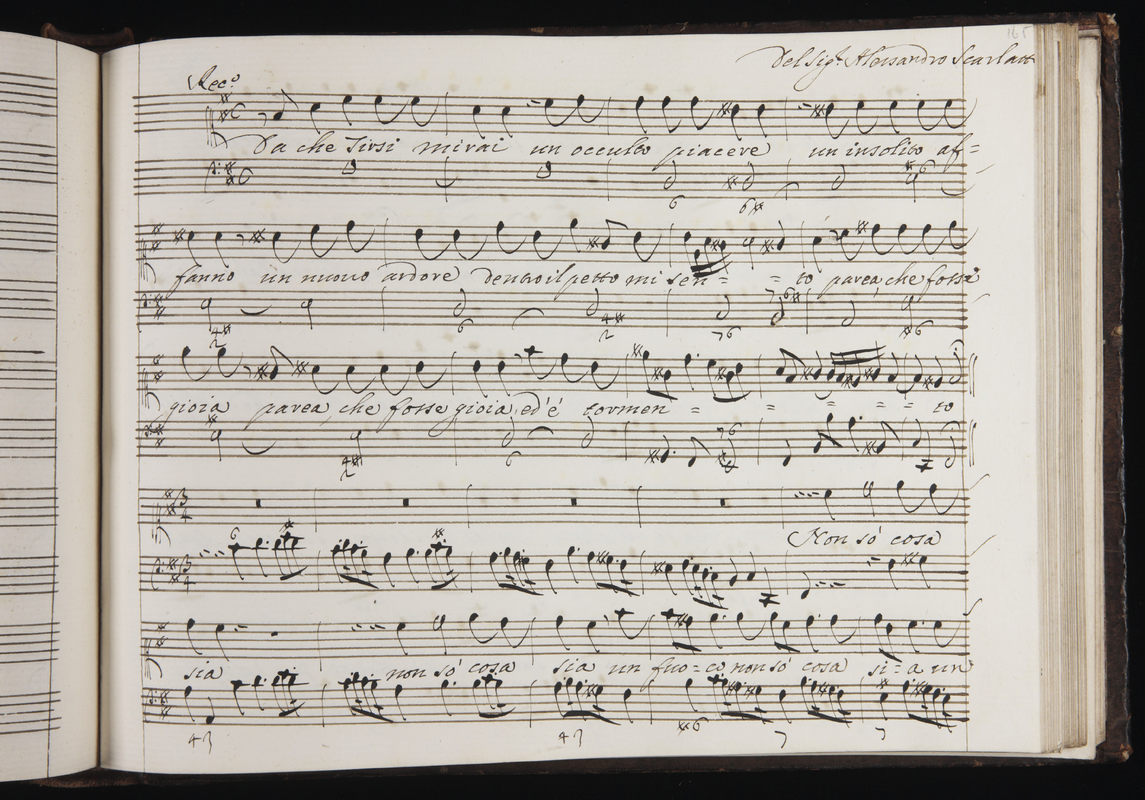 165
Del Sig.r Alessandro Scarlatti
Rec.o
Da che Tirsi mirai un occulto piacere un insolito af=
fanno un nuovo ardore dentro il petto mi sen= = to parea, che fosse
gioia parea, che fosse gioia, ed'é tormen = = = = = to
Non só cosa
sia non só cosa sia un fuo=co non só cosa si=a un